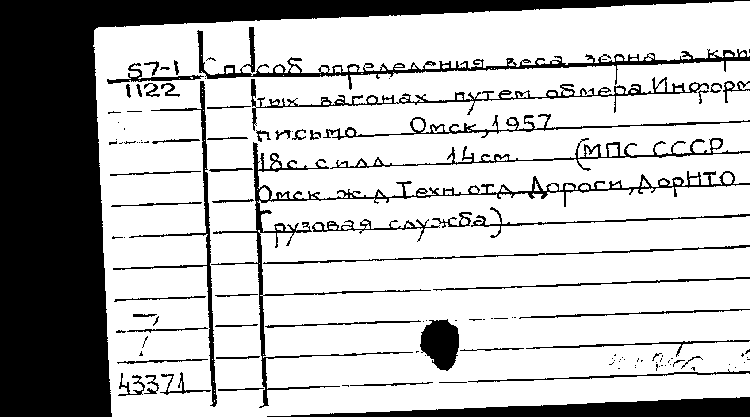 57-1 Способ определения веса зерна в кры
1122 тых вагонах путем обмера. Информ
письмо. Омск, 1957
18с. с илл. 14см. (МПС СССР.
Омск. ж.д. Техн. отд. Дороги, ДорНТО
Грузовая служба).
7
43371